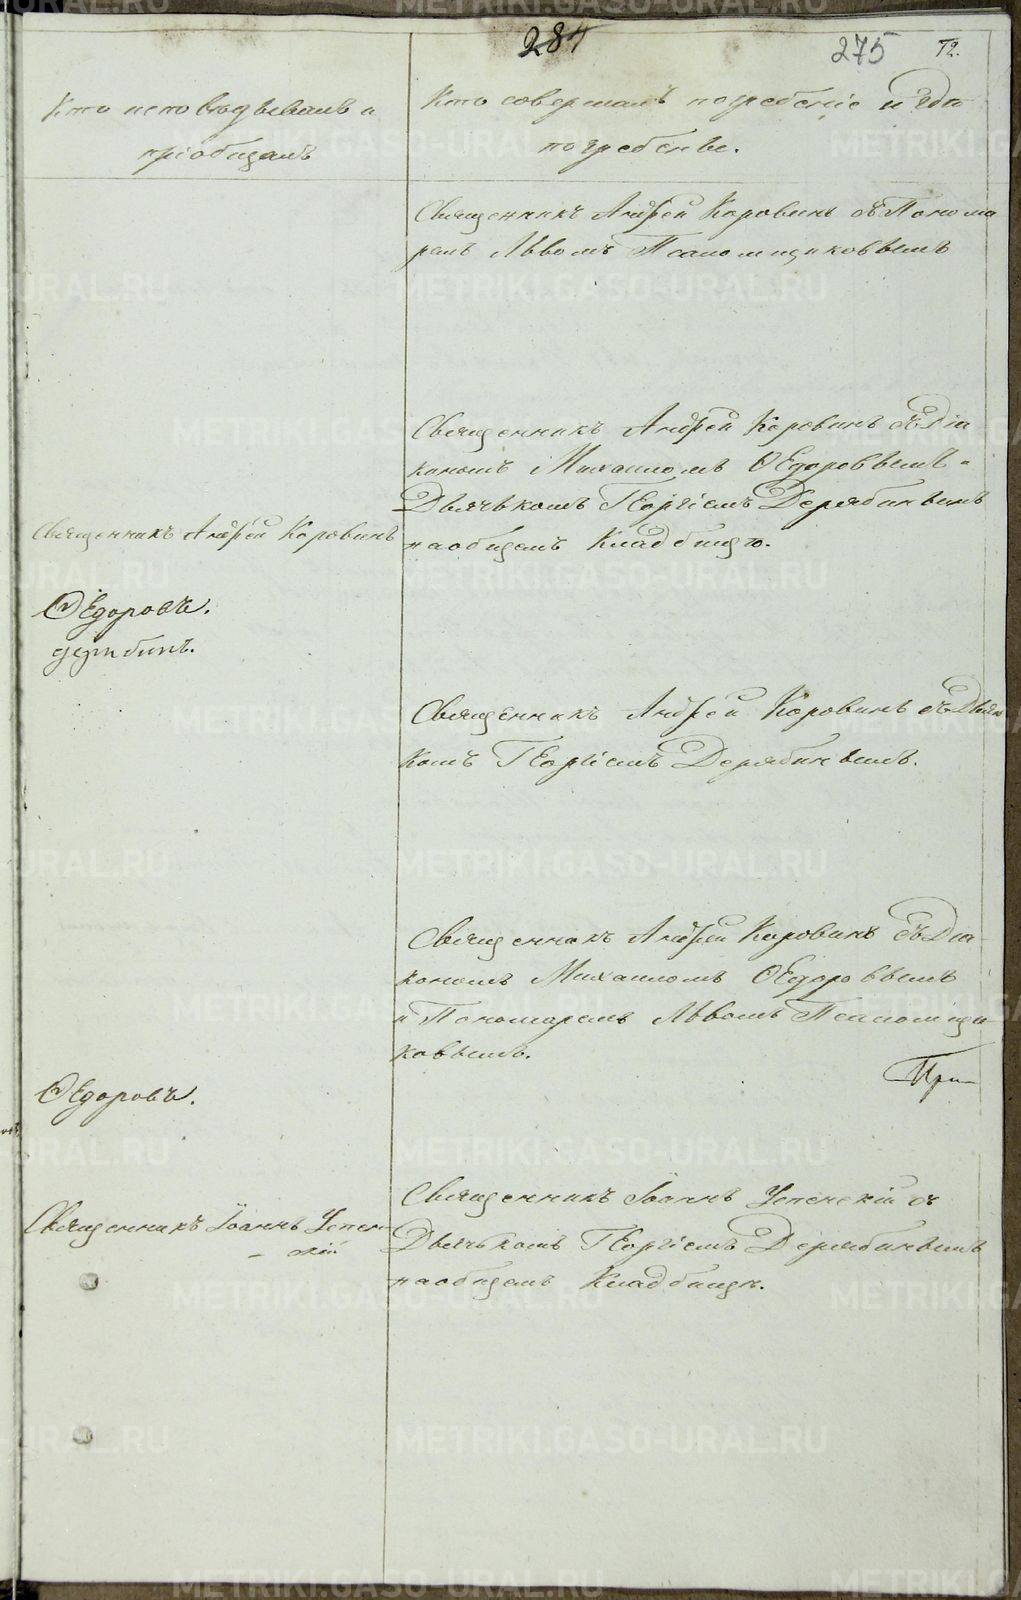 284
275
72.
Кто исповѣдывалъ и
пріобщалъ
Кто совершалъ погребеніе и гдѣ
погребены.
Священникъ Андрей Коровинъ съ Понома
ремъ Львомъ Псаломщиковымъ
Священникъ Андрей Коровинъ съ Діа
кономъ Михаиломъ Ѳедоровымъ
Дьячькомъ Георгіемъ Дерябинымъ
на общемъ Кладбищѣ.
Священникъ Андрей Коровинъ
Ѳедоровъ.
Дерябинъ.
Священникъ Андрей Коровинъ съ Дьяч
комъ Георгіемъ Дерябинымъ.
Священникъ Андрей Коровинъ съ Діа
кономъ Михаиломъ Ѳедоровымъ
и Пономаремъ Львомъ Псаломщи
ковымъ.
При
Ѳедоровъ.
Священникъ Іоаннъ Успенскій съ
Дьячькомъ Георгіемъ Дерябинымъ
на общемъ Кладбищѣ.
Священникъ Іоаннъ Успен
скій